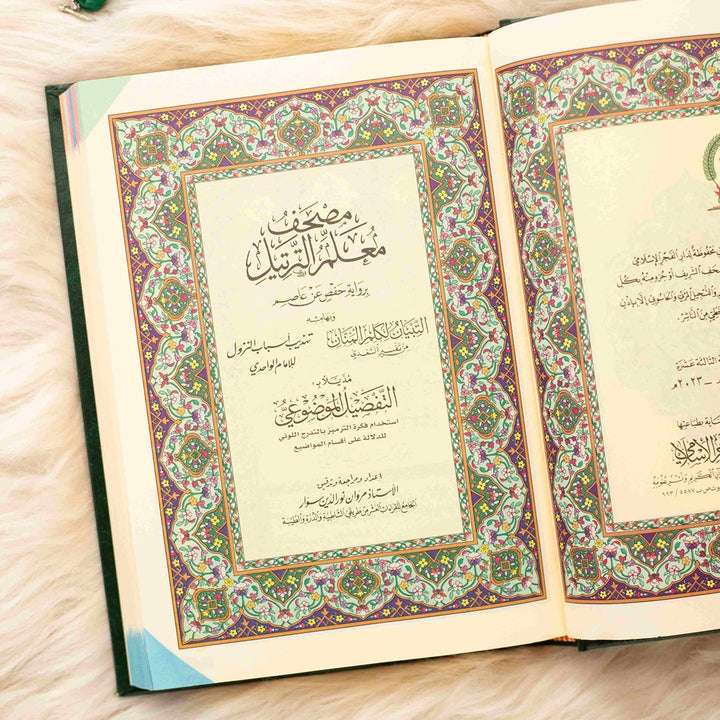 مصحف
معلم الترتيل
برواية حفص عن عاصم
وبهامشه
التبيان لكلم المنان
من تفسير السعدي
تهذيب أسباب النزول
للإمام الواحدي
مذيلاً بـ
التفصيل الموضوعي
استخدام فكرة الترميز بالتدرج اللوني
للدلالة على أقسام المواضيع
إعداد ومراجعة وتدقيق
الأستاذ مروان نور الدين سوار
الجامع للقراءات العشر من طريقي الشاطبية والدرة والطيبة
محفوظة لدار الفجر الإسلامي
الشريف أو جزء منه بكل
من الناشر
الثالثة عشرة
٢٠٢٣م
بطباعتها
٥٥٨٧ / ١١٣